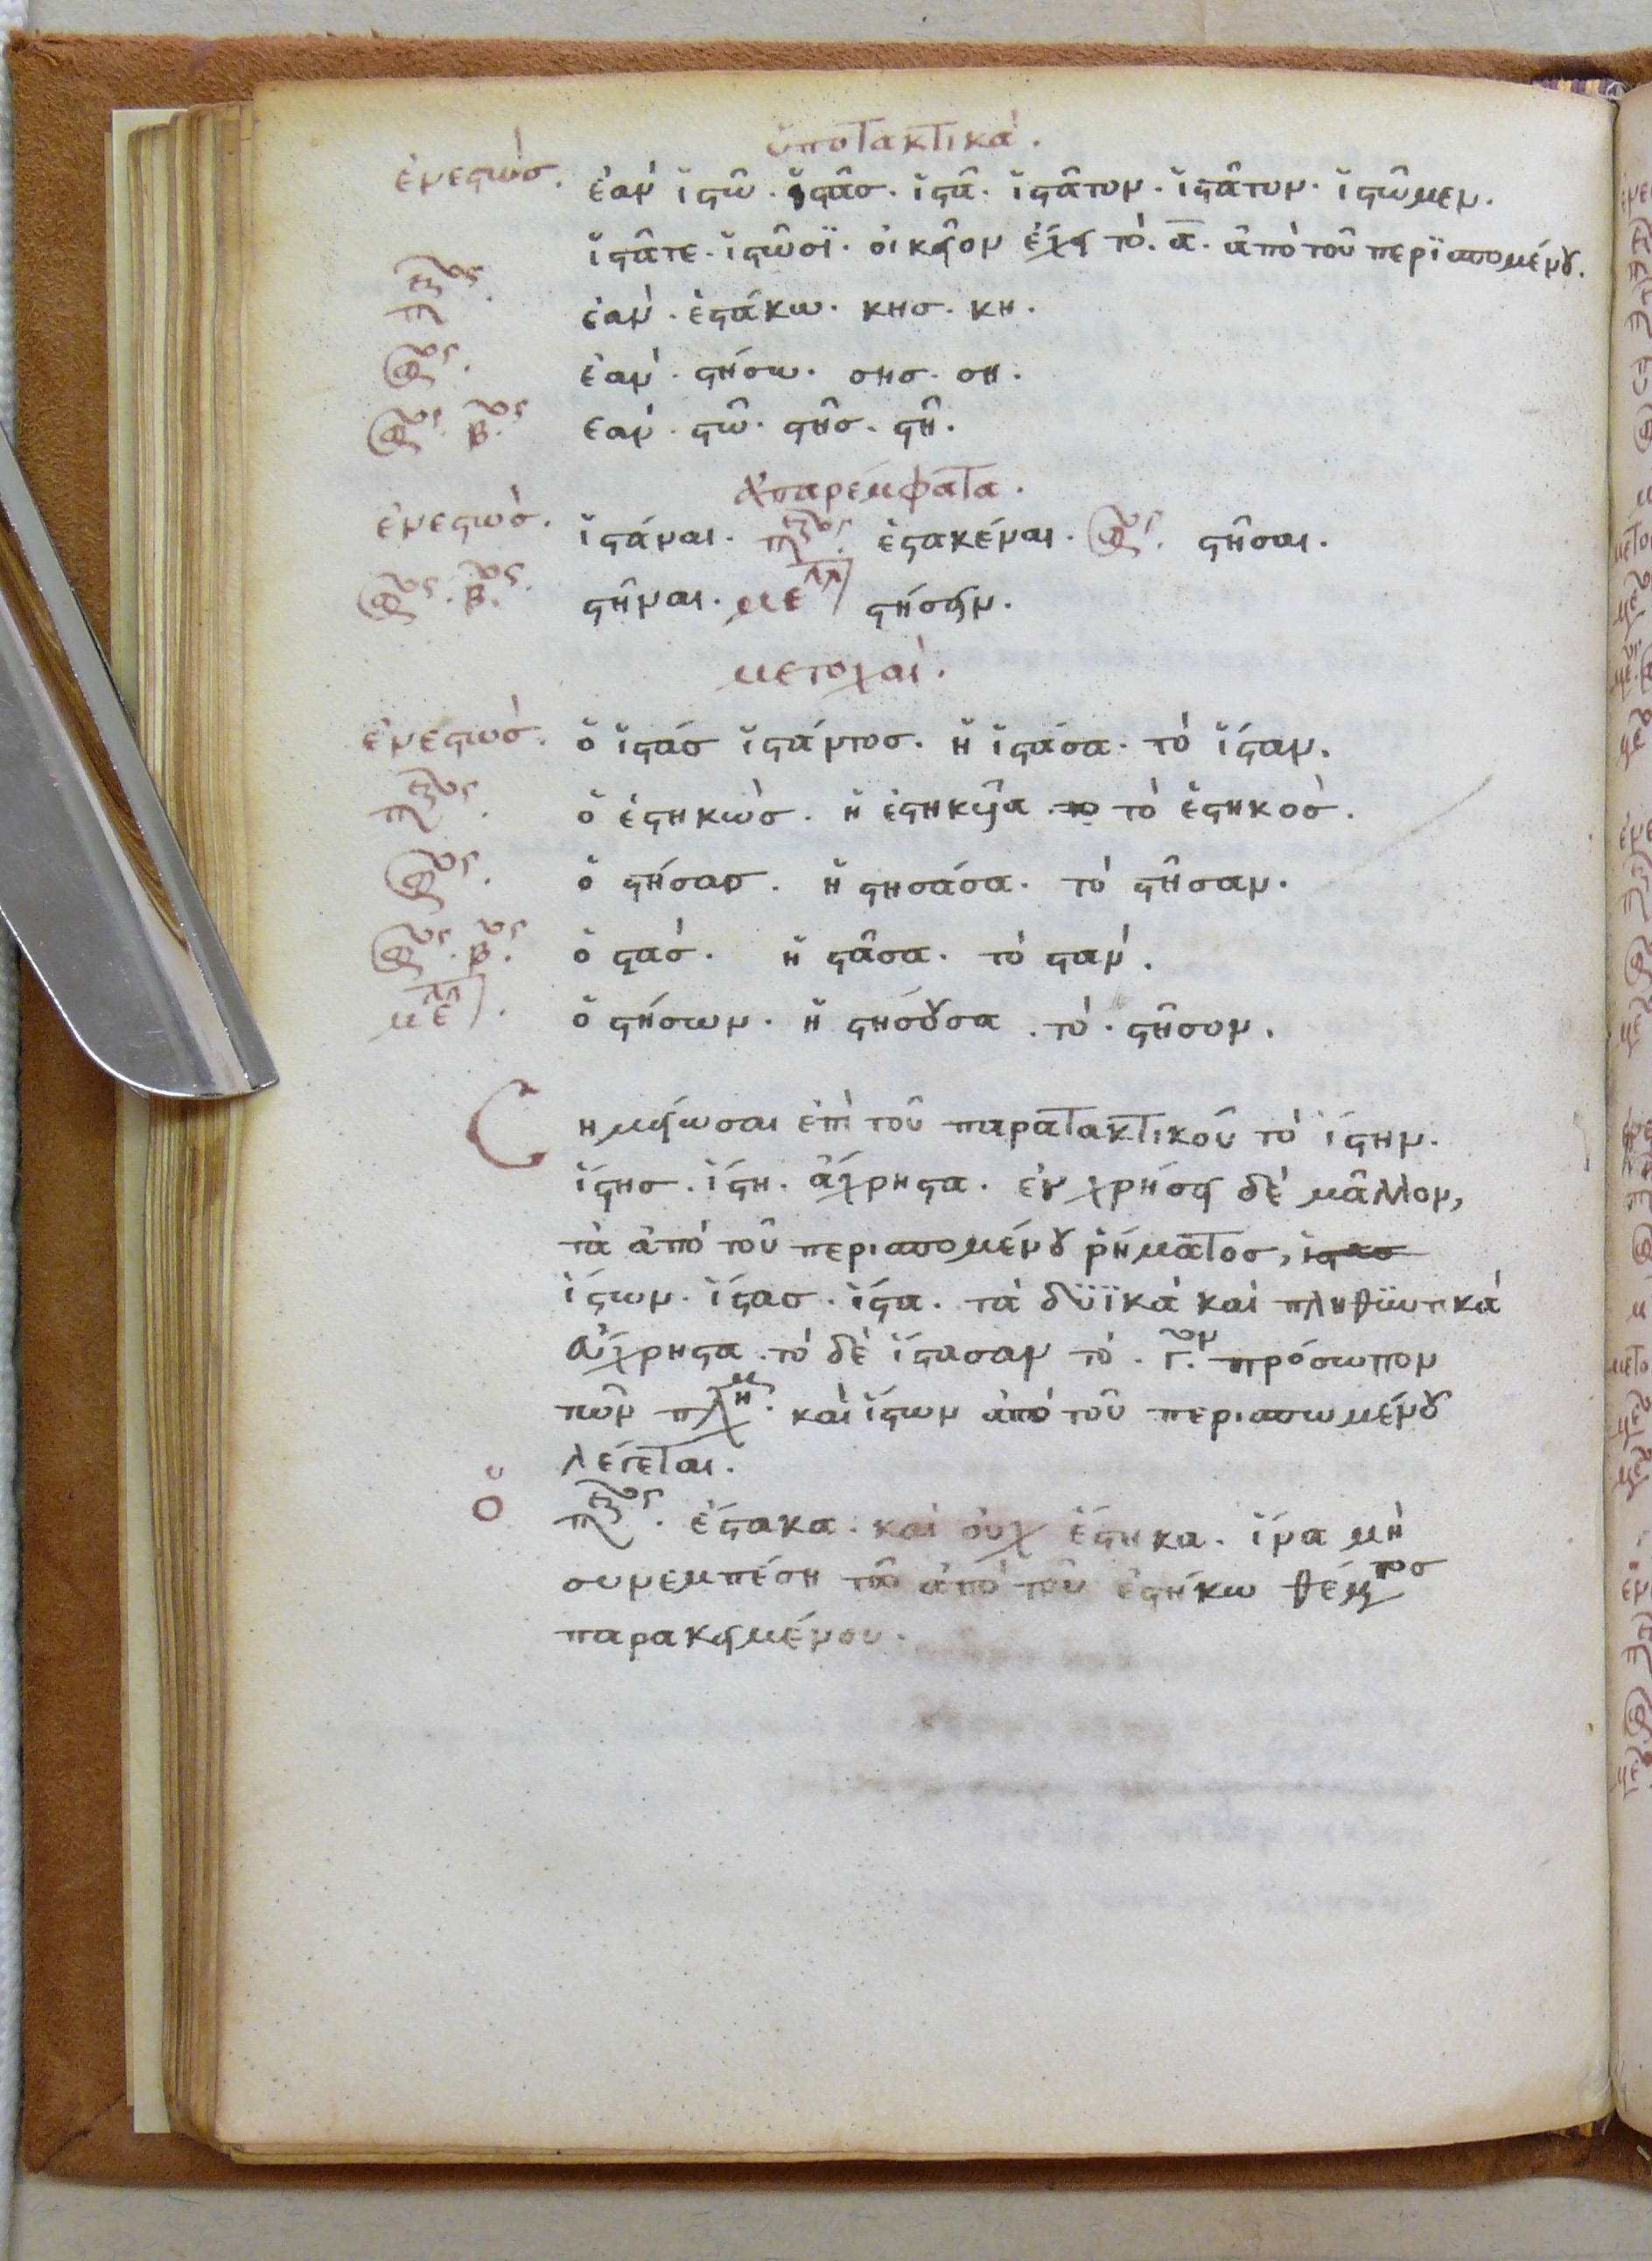 ὑποτακτικά.
ἐνεστώσ. ἐὰν ἱστῶ. ἱστᾶσ. ἱστᾶ. ἱστᾶτον. ἱστᾶτον. ἱστῶμεν.
ἱστᾶτε. ἱστῶσϊ. οἰκεῖον ἔχει τὸ. α. ἀπὸ τοῦ περϊσπομένου.
ἐὰν. ἑστάκω. κησ. κη.
ἐὰν. στήσω. σησ. ση.
β. ἐὰν. στῶ. στῆσ. στῆ.
ἀπαρέμφατα.
ἐνεστώσ. ἱστάναι. ἑστακέναι. στῆσαι.
β. στῆναι. στήσειν.
μετοχαί.
ἐνεστώσ. ὁ ἱστάσ ἱστάντοσ. ἡ ἱστάσα. τὸ ἱστάν.
ὁ ἑστηκώσ. ἡ ἑστηκυῖα. τὸ ἑστηκὸσ.
ὁ στήσασ. ἡ στησάσα. τὸ στῆσαν.
β. ὁ στάσ. ἡ στᾶσα. τὸ στάν.
ὁ στήσων. ἡ στήσουσα. τὸ. στῆσον.
Σημείωσαι ἐπὶ τοῦ παρατακτικοῦ τὸ ἵστην.
ἵστησ. ἵστη. ἄχρηστα. ἐν χρήσει δὲ μᾶλλον,
τὰ ἀπὸ τοῦ περισπομένου ῥήματοσ,
ἵστων. ἵστασ. ἵστα. τὰ δϋϊκὰ καὶ πληθϋντικὰ
ἄχρηστα. τὸ δὲ ἵστασαν τὸ. γ.ον πρόσωπον
τῶν πλη. καὶ ἵστων ἀπὸ τοῦ περισπωμένου
λέγεται.
Ὁ ἕστακα. καὶ οὐχ ἕστηκα. ἵνα μὴ
συνεμπέση τῶ ἀπὸ τοῦ ἑστήκω θέματοσ
παρακειμένου.